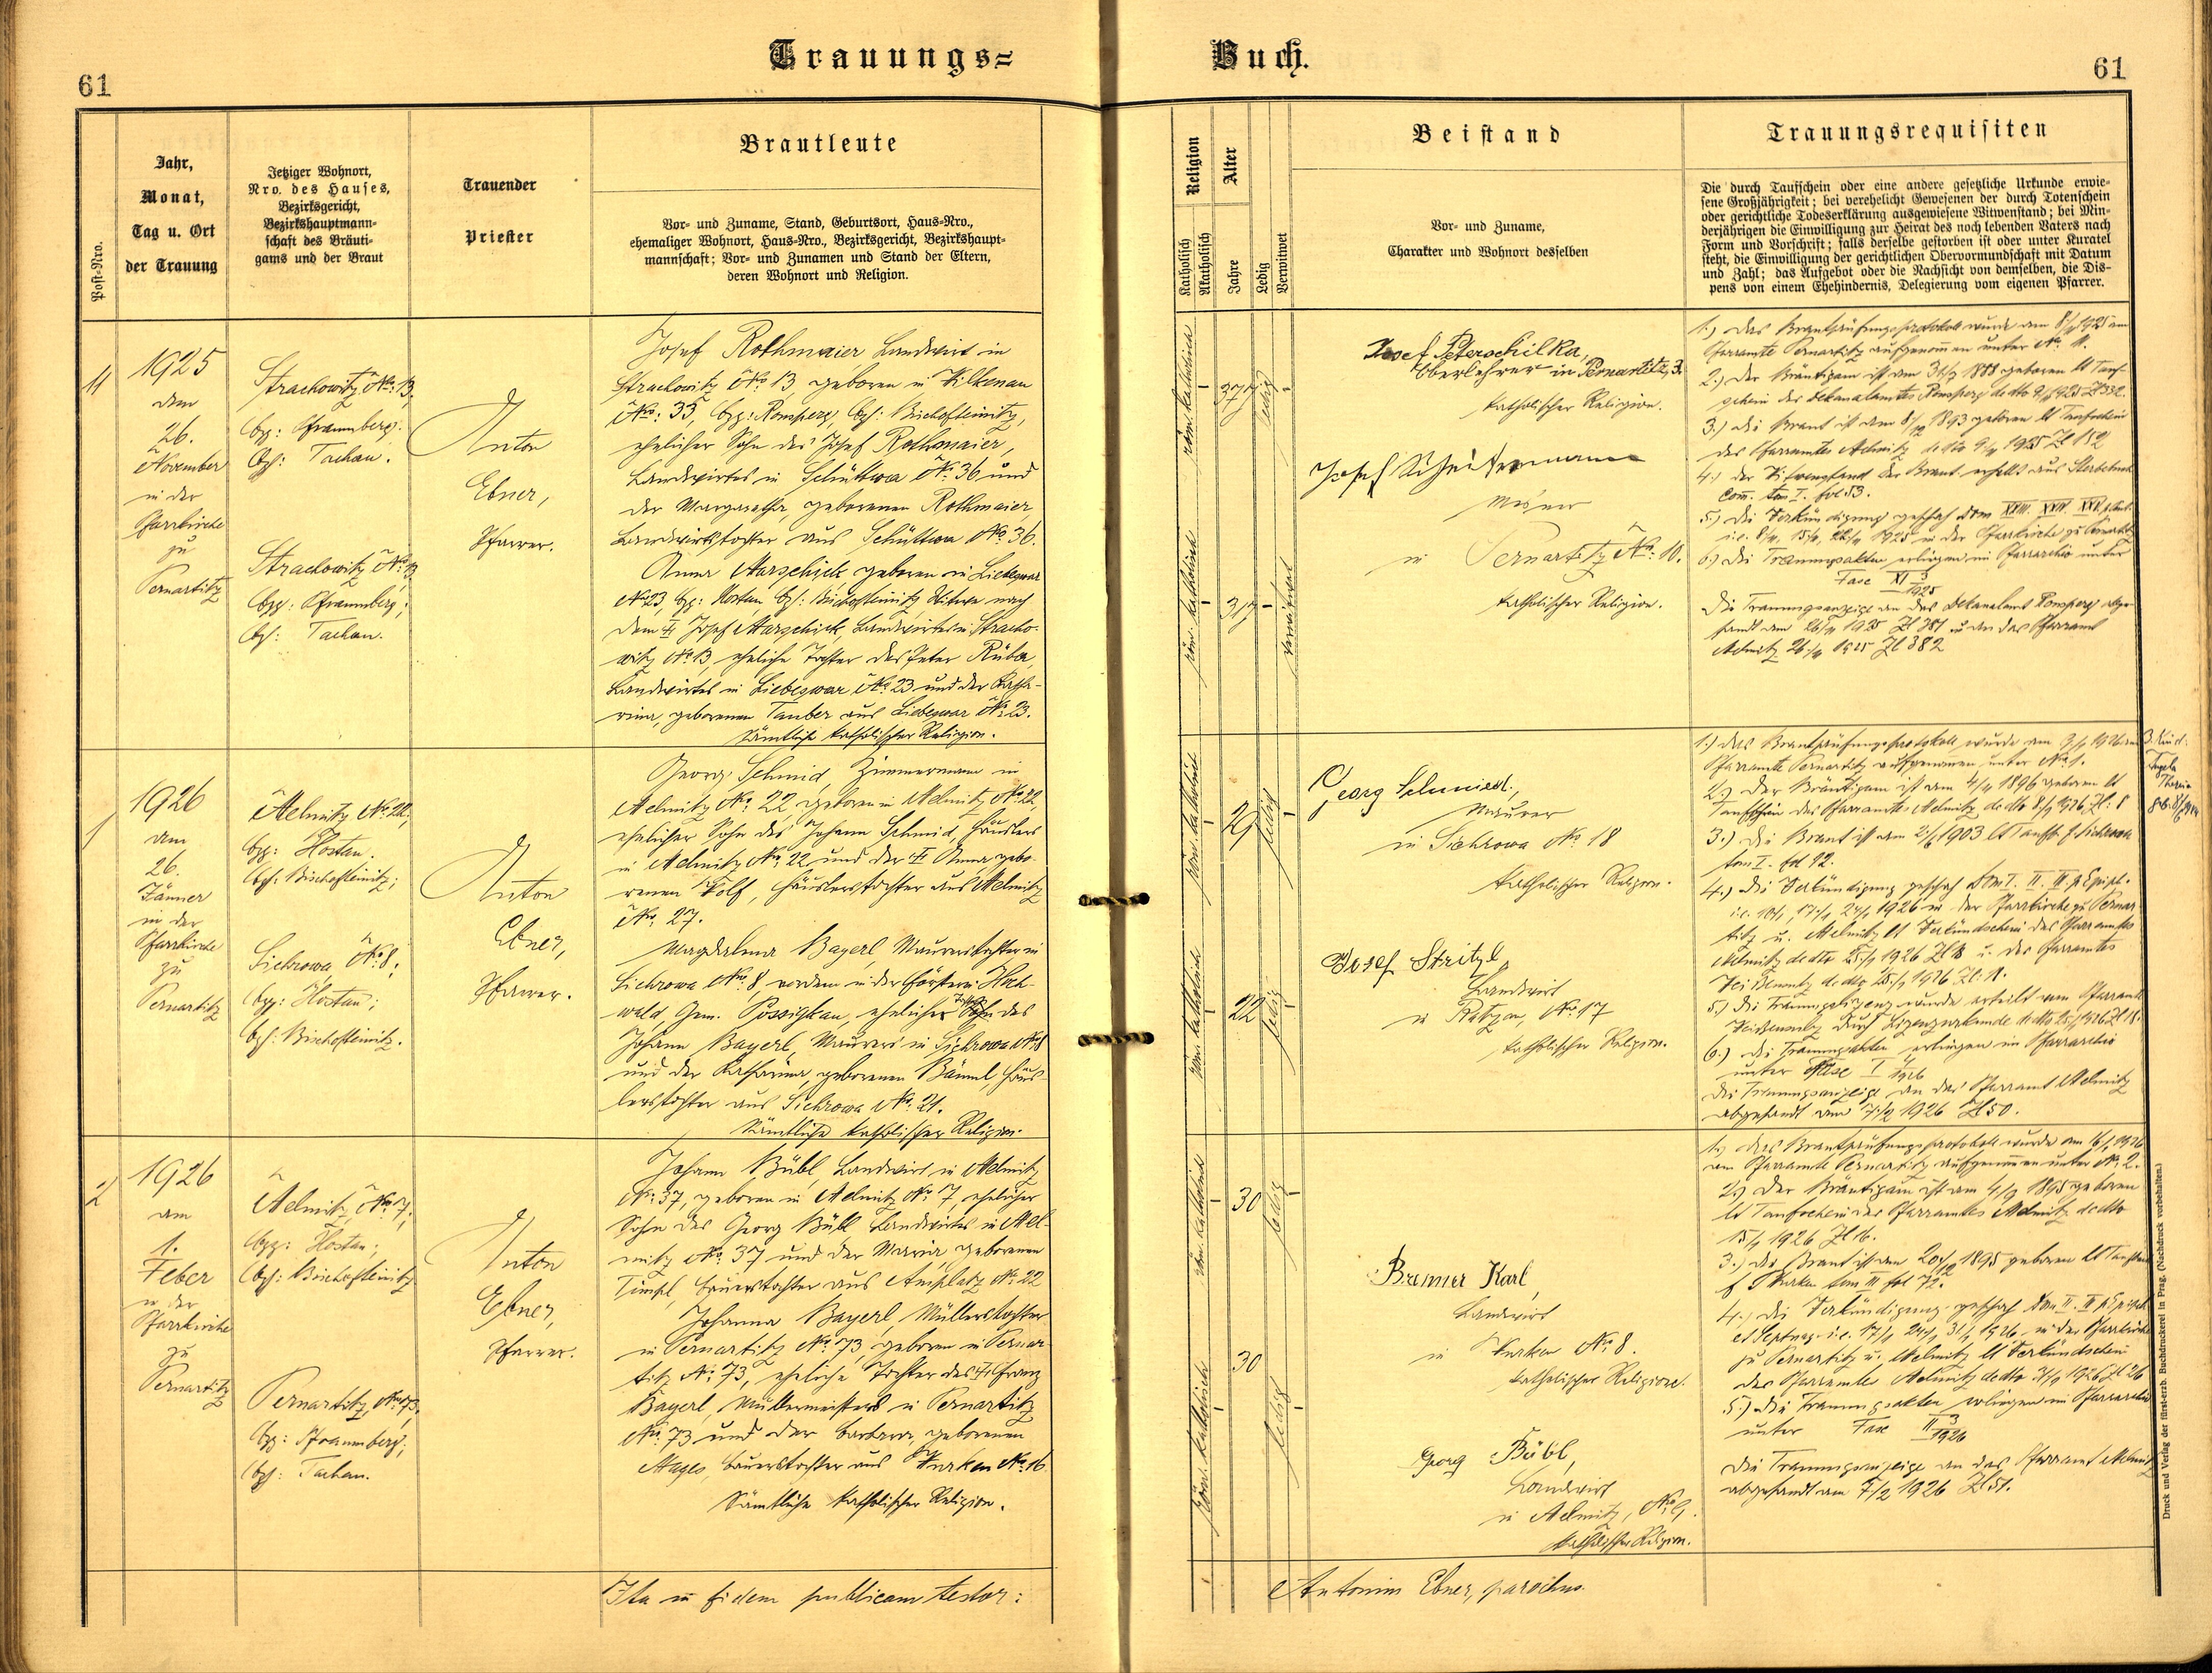 Trauungs=
Buch.
61
61
Post-Nro.
Jahr,
Monat,
Tag u. Ort
der Trauung
Jetziger Wohnort,
Nro. des Hauses,
Bezirksgericht,
Bezirkshauptmann-
schaft des Bräuti-
gams und der Braut
Trauender
Priester
Brautleute
Vor- und Zuname, Stand, Geburtsort, Haus-Nro.,
ehemaliger Wohnort, Haus-Nro., Bezirksgericht, Bezirkshaupt-
mannschaft; Vor- und Zunamen und Stand der Eltern,
deren Wohnort und Religion.
Religion
Katholisch
Akatholisch
Alter
Jahre
Ledig
Verwitwet
Beistand
Vor- und Zuname,
Charakter und Wohnort desselben
Trauungsrequisiten
Die durch Taufschein oder eine andere gesetzliche Urkunde erwie-
sene Großjährigkeit; bei verehelicht Gewesenen der durch Totenschein
oder gerichtliche Todeserklärung ausgewiesene Witwenstand; bei Min-
derjährigen die Einwilligung zur Heirat des noch lebenden Vaters nach
Form und Vorschrift; falls derselbe gestorben ist oder unter Kuratel
steht, die Einwilligung der gerichtlichen Obervormundschaft mit Datum
und Zahl; das Aufgebot oder die Nachsicht von demselben, die Dis-
pens von einem Ehehindernis, Delegierung vom eigenen Pfarrer.
11
1925
den
26.
November
in der
Pfarrkirche
zu
Pernartitz
Strachowitz No. 13,
bzg: Pfraumberg;
bzh: Tachau.
Strachowitz No. 13
bzg: Pfraumberg;
bzh: Tachau.
Anton
Ebner,
Pfarrer.
Josef Rothmaier, Landwirt in
Strachowitz No. 13, geboren in Wilkenau
No. 33, bzg: Ronsperg, bzh: Bischofteinitz,
ehelicher Sohn des Josef Rothmaier,
Landwirtes in Schüttwa No. 36 und
der Margaretha, geborenen Rothmaier,
Landwirtstochter aus Schüttwa No. 36.
Anna Marschick, geboren in Liebeswar
No 23, bzg: Hostau, bzh: Bischofteinitz, Witwe nach
dem † Josef Marschick, Landwirtes in Stracho-
witz No. 13, eheliche Tochter des Peter Rüba,
Landwirtes in Liebeswar No. 23 und der Katha-
rina, geborenen Tauber aus Liebeswar No. 23.
Sämtliche katholischer Religion.
röm. katholisch
37
ledig
röm. katholisch
verwitwet
Josef Peterschilka,
Oberlehrer in Pernartitz, 3.
katholischer Religion.
Josef
Mesner
in Pernartitz No. 10.
katholischer Religion.
1.) Das Brautprüfungsprotokoll wurde am 8/11 1925 am
Pfarramte Pernartitz aufgenommen unter No. 11.
2.) Der Bräutigam ist am 1888 geboren lt Tauf-
schein des Dekanalamtes Ronsperg
3.) Die Braut ist am 1893 geboren lt Taufschein
des Pfarramtes Melmitz de dto 1925 Zl 152
4.) Der Witwenstand der Braut erhellt aus Sterbebuch
tom I. fol 53.
5.) Die Verkündigung geschah Dom XXIII. XXIV. XXV.
i.e. 8/11, 15/11, 22/11 1925 in der Pfarrkirche zu Pernartitz
6.) Die Trauungsakten erliegen im Pfarrarchiv unter
Fasc XI 3/1925
Die Trauungsanzeige an das Dekanalamt Ronsperg abge-
sandt am 26/11 1925 Zl 381 u. an das Pfarramt
Melmitz 26/11 1925 Zl 382
1
1926
am
26.
Jänner
in der
Pfarrkirche
zu
Pernartitz
Melmitz No. 22;
bzg: Hostau.
bzh: Bischofteinitz;
Sichrowa No. 8;
bzg: Hostau;
bzh: Bischofteinitz.
Anton
Ebner,
Pfarrer.
Georg Schmid, Zimmermann in
Melmitz No. 22, geboren in Melmitz No. 22,
ehelicher Sohn des Johann Schmid, Häuslers
in Melmitz No. 22 und der † Anna, gebo-
renen Wolf, Häuslerstochter aus Melmitz
No. 27.
Magdalena Bayerl, Maurerstochter in
Sichrowa No. 8, vordem in der Försterei Hoch-
wald, Gem. Possigkau, eheliche Tochter des
Johann Bayerl, Maurers in Sichrowa No. 8
und der Katharina, geborenen Bäuml, Häus-
lerstochter aus Sichrowa No. 21.
Sämtliche katholischer Religion.
röm. katholisch
29
ledig
röm. katholisch
22
ledig
Georg Schmiedl,
Maurer
in Sichrowa No 18
katholischer Religion.
Josef Stritzl,
Landwirt
in No. 17
katholischer Religion.
1.) Das Brautprüfungsprotokoll wurde am 1926 am
Pfarramte Pernartitz aufgenommen unter No. 1.
2.) Der Bräutigam ist am 1896 geboren lt
Taufschein des Pfarramtes Melmitz de dto 1926, Zl: 8
3.) Die Braut ist am 1903 lt Taufb. f. Sichrowa
tom I. fol 12.
4.) Die Verkündigung geschah Dom I. II. III. p. Epiph.
i.e. 10/1, 17/1, 24/1 1926 in der Pfarrkirche zu Pernar-
titz u. Melmitz lt Verkündschein des Pfarramtes
Melmitz de dto 25/1 1926 u. des Pfarramtes
de dto 25/1 1926 Zl: 11.
5.) Die Trauungslizenz wurde erteilt vom Pfarramte
durch Lizenzurkunde
6.) Die Trauungsakten erliegen im Pfarrarchiv
unter Fasc I 1926
Die Trauungsanzeige an das Pfarramt Melmitz
abgesandt am 7/2 1926 Zl 50.
3. Kind:
2
1926
am
1.
Feber
in der
Pfarrkirche
zu
Pernartitz
Melmitz, No. 17;
bzg: Hostau;
bzh: Bischofteinitz
Pernartitz, No. 73,
bzg: Pfraumberg;
bzh: Tachau.
Anton
Ebner,
Pfarrer.
Johann Bübl, Landwirt in Melmitz
No. 37, geboren in Melmitz No. 7, ehelicher
Sohn des Georg Bübl, Landwirtes in Mel-
mitz No. 37 und der Maria, geborenen
Bauerstochter aus Amplatz No. 22
Johanna Bayerl, Müllerstochter
in Pernartitz No. 73, geboren in Pernar-
titz No. 73, eheliche Tochter des † Franz
Bayerl, Müllermeisters in Pernartitz
No. 73 und der Barbara, geborenen
Mages, Bauerstochter aus Wurken No. 16.
Sämtliche katholischer Religion.
röm. katholisch
30
ledig
röm. katholisch
30
ledig
Brunner Karl,
Landwirt
in Wurken No. 8.
katholischer Religion.
Georg Bübl,
Landwirt
in Melmitz,
katholischer Religion.
1.) Das Brautprüfungsprotokoll wurde am 16/1 1926
am Pfarramte Pernartitz aufgenommen unter No. 2.
2.) Der Bräutigam ist am 1895 geboren
lt Taufschein des Pfarramtes Melmitz de dto
15/1 1926 Zl 16.
3.) Die Braut ist am 1895 geboren lt Taufbuch
f. Wurken tom III fol 72.
4.) Die Verkündigung geschah Dom II. III p. Epiph.
et Septuag. i.e. 17/1, 24/1, 31/1 1926, in der Pfarrkirche
zu Pernartitz u. Melmitz lt Verkündschein
des Pfarramtes Melmitz de dto 31/1 1926 Zl 26
5.) Die Trauungsakten erliegen im Pfarrarchiv
unter Fasc II 3/1926
Die Trauungsanzeige an das Pfarramt Melmitz
abgesandt am 7/2 1926 Zl 51.
Ita in fidem publicam testor:
Antonius Ebner, parochus.
Druck und Verlag der fürst-erzb. Buchdruckerei in Prag. (Nachdruck vorbehalten.)